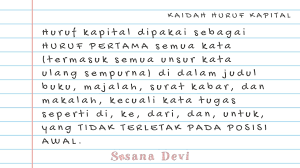 KAIDAH HURUF KAPITAL
Huruf kapital dipakai sebagai
HURUF PERTAMA semua kata
(termasuk semua unsur kata
ulang sempurna) di dalam judul
buku, majalah, surat kabar, dan
makalah, kecuali kata tugas
seperti di, ke, dari, dan, untuk,
yang TIDAK TERLETAK PADA POSISI
AWAL.
Sosana Devi